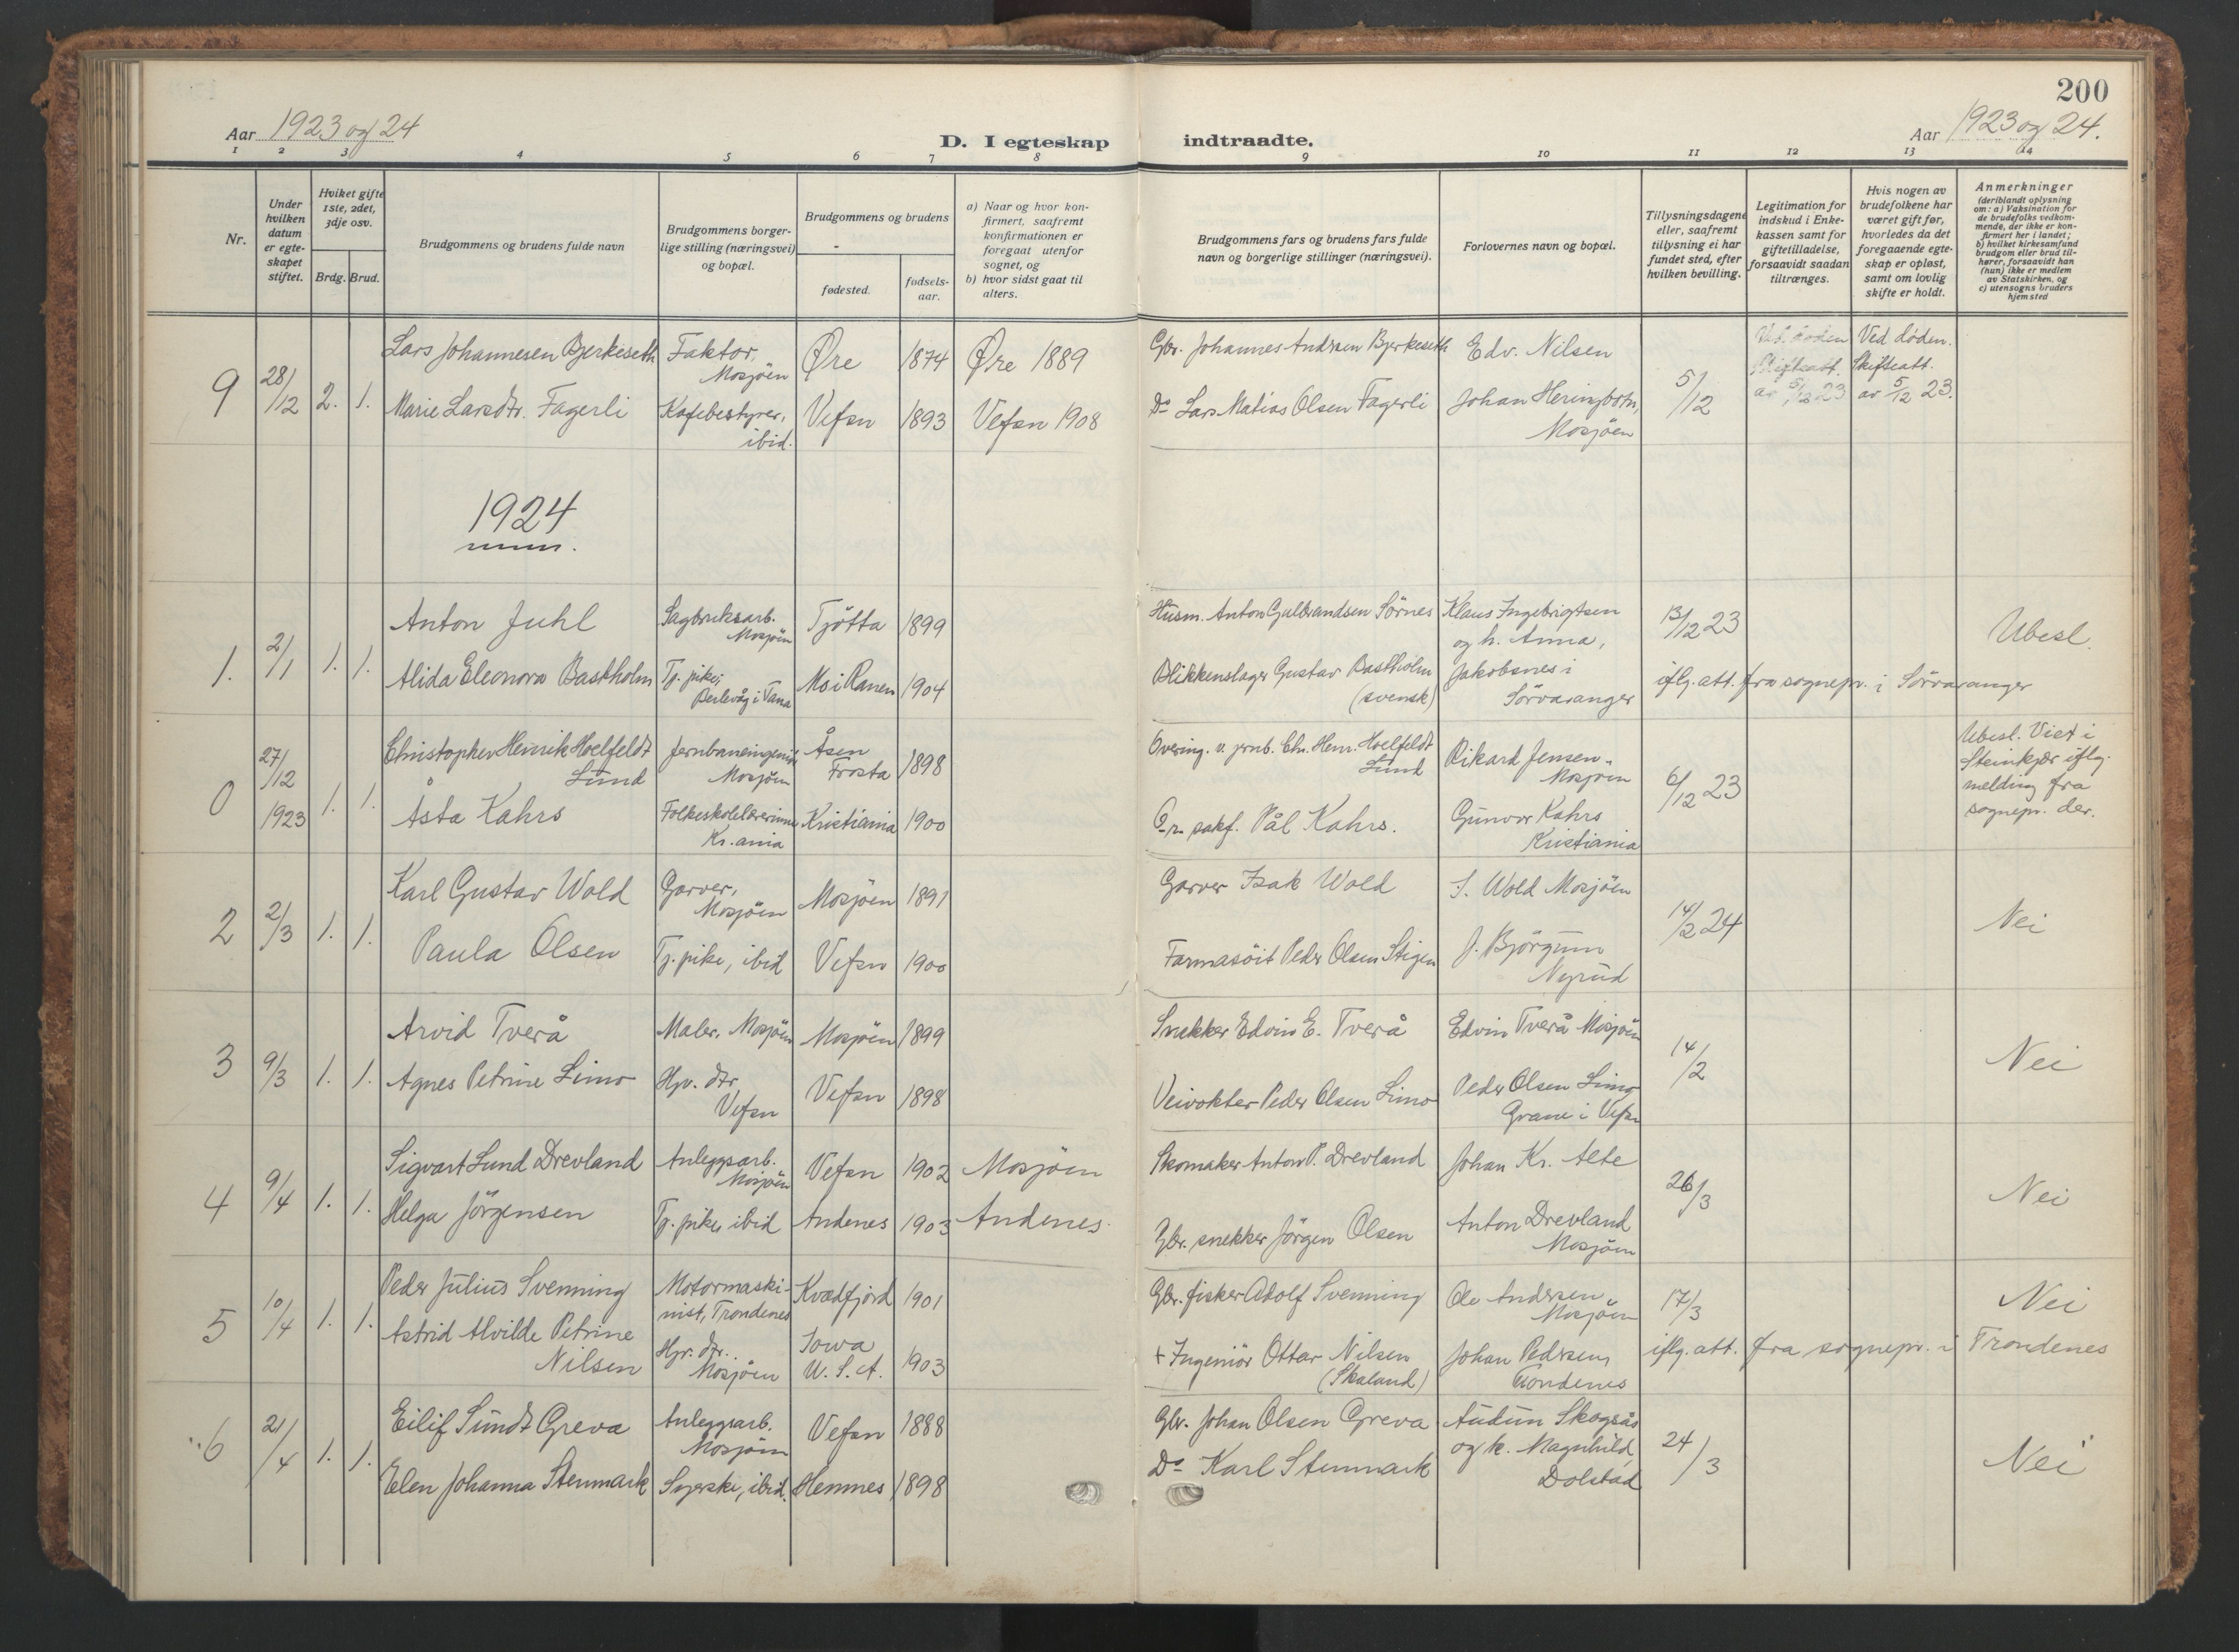 200
Aar 1923 og 24
D. I egteskap indtraadte.
Aar 1923 og 24.
1 2 3 4 5 6 7 8 9 10 11 12 13 14
Nr.
Under hvilken datum er egte-skapet stiftet.
Hviket gifte 1ste, 2det, 3dje osv.
Brdg. Brud.
Brudgommens og brudens fulde navn
Brudgommens borger-lige stilling (næringsvei) og bopæl.
Brudgommens og brudens
fødested.
fødsels-aar.
a) Naar og hvor kon-firmert, saafremt konfirmationen er foregaat utenfor sognet, og
b) hvor sidst gaat til alters.
Brudgommens fars og brudens fars fulde navn og borgerlige stillinger (næringsvei).
Forlovernes navn og bopæl.
Tillysningsdagene eller, saafremt tillysning ei har fundet sted, efter hvilken bevilling.
Legitimation for indskud i Enke-kassen samt for giftetilladelse, forsaavidt saadan tiltrænges.
Hvis nogen av brudefolkene har været gift før, hvorledes da det foregaaende egte-skap er opløst, samt om lovlig skifte er holdt.
Anmerkninger (deriblandt oplysning om: a) Vaksination for de brudefolks vedkom-mende, der ikke er kon-firmert her i landet; b) hvilket kirkesamfund brudgom eller brud til-hører, forsaavidt han (hun) ikke er medlem av Statskirken, og c) utensogns bruders hjemsted
9 28/12 2. 1.
Lars Johannesen Bjerkeseth Faktor, Mosjöen Øre 1874 Øre 1889
Marie Larsdtr. Fagerli Kafebestyrer, ibid. Vefsn 1893 Vefsn 1908
Gbr. Johannes Andrsen Bjerkeseth Edv. Nilsen
Do Lars Matias Olsen Fagerli Johan Heringbotn, Mosjöen
5/12
Ved döden Skifteatt. av 5/12 23
Ved døden. Skifteatt. av 5/12 23.
1924
1. 2/1 1. 1.
Anton Juhl Sagbruksarb. Mosjöen Tjötta 1899
Alida Eleonora Bastholm Tj. pike, Berlevåg i Tana Mo i Ranen 1904
Husm. Anton Gulbrandsen Sörnes Klaus Ingebrigtsen og h. Anna,
Blikkenslager Gustav Bastholm (svensk) Jakobsnes i Sörvaranger
13/12 23
iflg. att. fra sognepr. i Sörvaranger
Ubesl.
0 27/12 1923 1. 1.
Christopher Heinrik Hoelfeldt Lund jernbaneingeniör Mosjöen Åsen Frosta 1898
Åsta Kahrs Folkeskolelærerinne Kr.ania Kristiania 1900
Overing. v. jernb. Chr. Henr. Hoelfeldt Lund Rikard Jensen Mosjöen
O.r. sakf. Pål Kahrs. Gunvor Kahrs Kristiania
6/12 23
Ubesl. Viet i Steinkjer iflg. melding fra sognepr. der.
2 2/3 1. 1.
Karl Gustav Wold Garver, Mosjöen Mosjöen 1891
Paula Olsen Tj. pike, ibid Vefsn 1900
Garver Isak Wold I. Wold Mosjöen
Farmasöit Peder Olsen Stigen J. Björgum Nyrud
14/2 24
Nei
3 9/3 1. 1.
Arvid Tverå Maler, Mosjöen Mosjöen 1899
Agnes Petrine Limo Hjv. dtr. Vefsn Vefsn 1898
Snekker Edvin E. Tverå Edvin Tverå Mosjöen
Veivokter Peder Olsen Limo Peder Olsen Limo Grane i Vefsn
14/2
Nei
4 9/4 1. 1.
Sigvart Lund Drevland Anleggsarb. Mosjöen Vefsn 1902 Mosjöen
Helga Jörgensen Tj. pike, ibid Andenes 1903 Andenes.
Skomaker Anton P. Drevland Johan Kr. Alte
Gbr. snekker Jörgen Olsen Anton Drevland Mosjöen
26/3
Nei
5 10/4 1. 1.
Peder Julius Svenning Motormaski-nist, Trondenes Kvædfjord 1901
Astrid Alvilde Petrine Nilsen Hjv. dtr. Mosjöen Iowa U.S.A. 1903
Gbr. fisker Adolf Svenning Ole Andersen Mosjöen
+ Ingeniör Ottar Nilsen (Skaland) Johan Pedrsen, Trondenes
17/3
iflg. att. fra sognepr. i Trondenes
Nei
6 21/4 1. 1.
Eilif Sundt Greva Anleggsarb. Mosjöen Vefsn 1888
Elen Johanna Stenmark Syerske, ibid. Hemnes 1898
Gbr. Johan Olsen Greva Audun Skogsås og h. Magnhild,
Do Karl Stenmark Dolstad
24/3
Nei